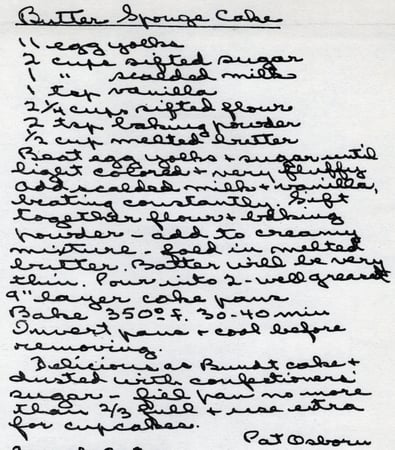 Butter Sponge Cake
11 egg yolks
2 cups sifted sugar
1 " scalded milk
1 tsp vanilla
2 1/4 cups sifted flour
2 tsp baking powder
1/2 cup melted butter
Beat egg yolks + sugar until
light colored + very fluffy
Add scalded milk + vanilla,
beating constantly. Sift
together flour + baking
powder - add to creamy
mixture - fold in melted
butter. Batter will be very
thin. Pour into 2 - well greased
9" layer cake pans
Bake 350° f. 30-40 min
Invert pans + cool before
removing.
Delicious as Bundt cake +
dusted with confectioners'
sugar - fill pan no more
than 2/3 full + use extra
for cupcakes.
Pat Osborn